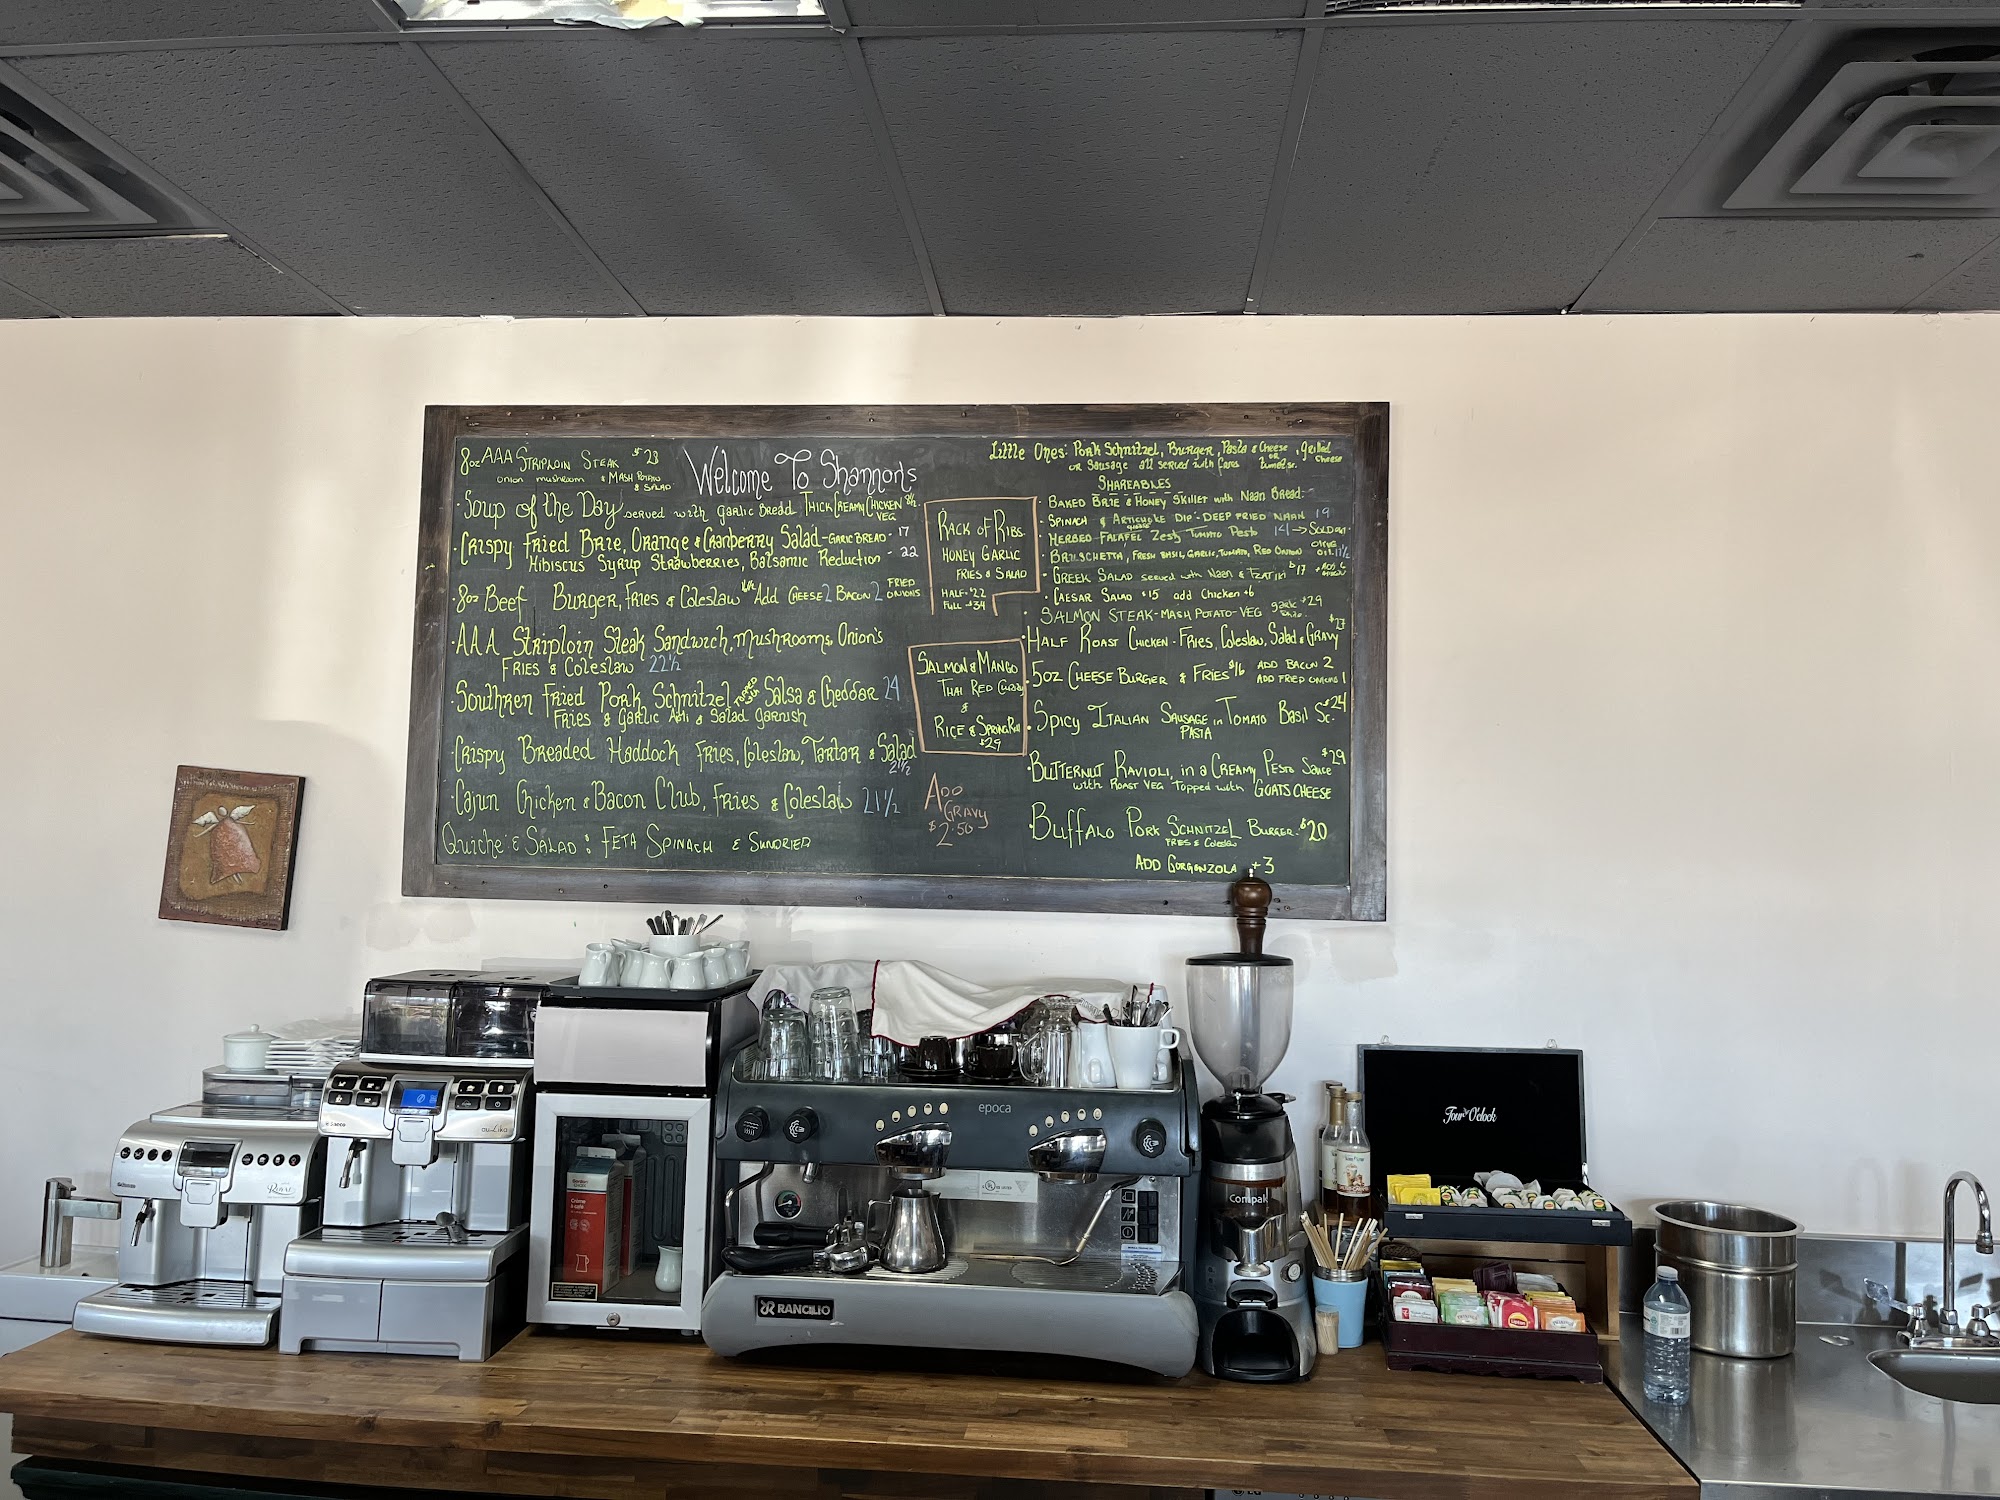 8oz AAA STRIPLOIN STEAK $23
ONION MUSHROOM & MASH POTATO
& SALAD
Welcome To Shannon's
· Soup of the Day served with Garlic Bread THICK CREAMY CHICKEN 8½
VEG
· Crispy Fried Brie, Orange & Cranberry Salad - GARLIC BREAD - 17
Hibiscus Syrup Strawberries, Balsamic Reduction - 22
· 8oz Beef Burger, Fries & Coleslaw Add CHEESE 2 BACON 2 FRIED
ONIONS
· AAA Striploin Steak Sandwich, Mushrooms, Onion's
FRIES & COLESLAW 22½
Southren Fried Pork Schnitzel TOPPED with Salsa & Cheddar 24
Fries & Garlic Aoli & Salad Garnish
· Crispy Breaded Haddock Fries, Coleslaw, Tartar & Salad
21½
· Cajun Chicken & Bacon Club, Fries & Coleslaw 21½
Quiche & SALAD : FETA SPINACH & SUNDRIED
RACK OF RIBS
HONEY GARLIC
FRIES & SALAD
HALF - $22
FULL - $34
SALMON & MANGO
THAI RED CURRY
&
RICE & SPRING ROLL
$29
ADD
GRAVY
$2.50
Little Ones: Pork Schnitzel, Burger, Pasta & Cheese, Grilled
Cheese
or Sausage all served with fries
SHAREABLES
· BAKED BRIE & HONEY SKILLET with NAAN BREAD -
· SPINACH & ARTICHOKE DIP - DEEP FRIED NAAN 19
· HERBED FALAFEL Zesty Tomato Pesto 14 → SOLD OUT
· BRUSCHETTA, FRESH BASIL, GARLIC, TOMATO, RED ONION OLIVE
OIL 17½
· GREEK SALAD served with Naan & TZATIKI $17
· CAESAR SALAD $15 add Chicken +6
· SALMON STEAK - MASH POTATO - VEG $29
· HALF ROAST CHICKEN - FRIES, Coleslaw, Salad & GRAVY $23
· 5oz CHEESE BURGER & FRIES $16 ADD BACON 2
ADD FRIED ONIONS 1
· SPICY ITALIAN SAUSAGE in TOMATO Basil Sc. $24
PASTA
· BUTTERNUT RAVIOLI, in a CREAMY PESTO Sauce $29
with ROAST VEG Topped with GOATS CHEESE
· BUFFALO PORK SCHNITZEL BURGER - $20
FRIES & Coleslaw
ADD GORGONZOLA +3
Saeco
Saeco
Royal
Crème
à café
epoca
RANCILIO
Compak
Four O'clock
Lipton
LG